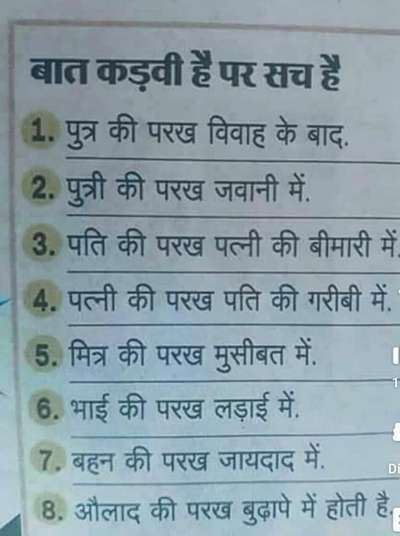 बात कड़वी है पर सच है
1. पुत्र की परख विवाह के बाद.
2. पुत्री की परख जवानी में.
3. पति की परख पत्नी की बीमारी में.
4. पत्नी की परख पति की गरीबी में.
5. मित्र की परख मुसीबत में.
6. भाई की परख लड़ाई में.
7. बहन की परख जायदाद में.
8. औलाद की परख बुढ़ापे में होती है.